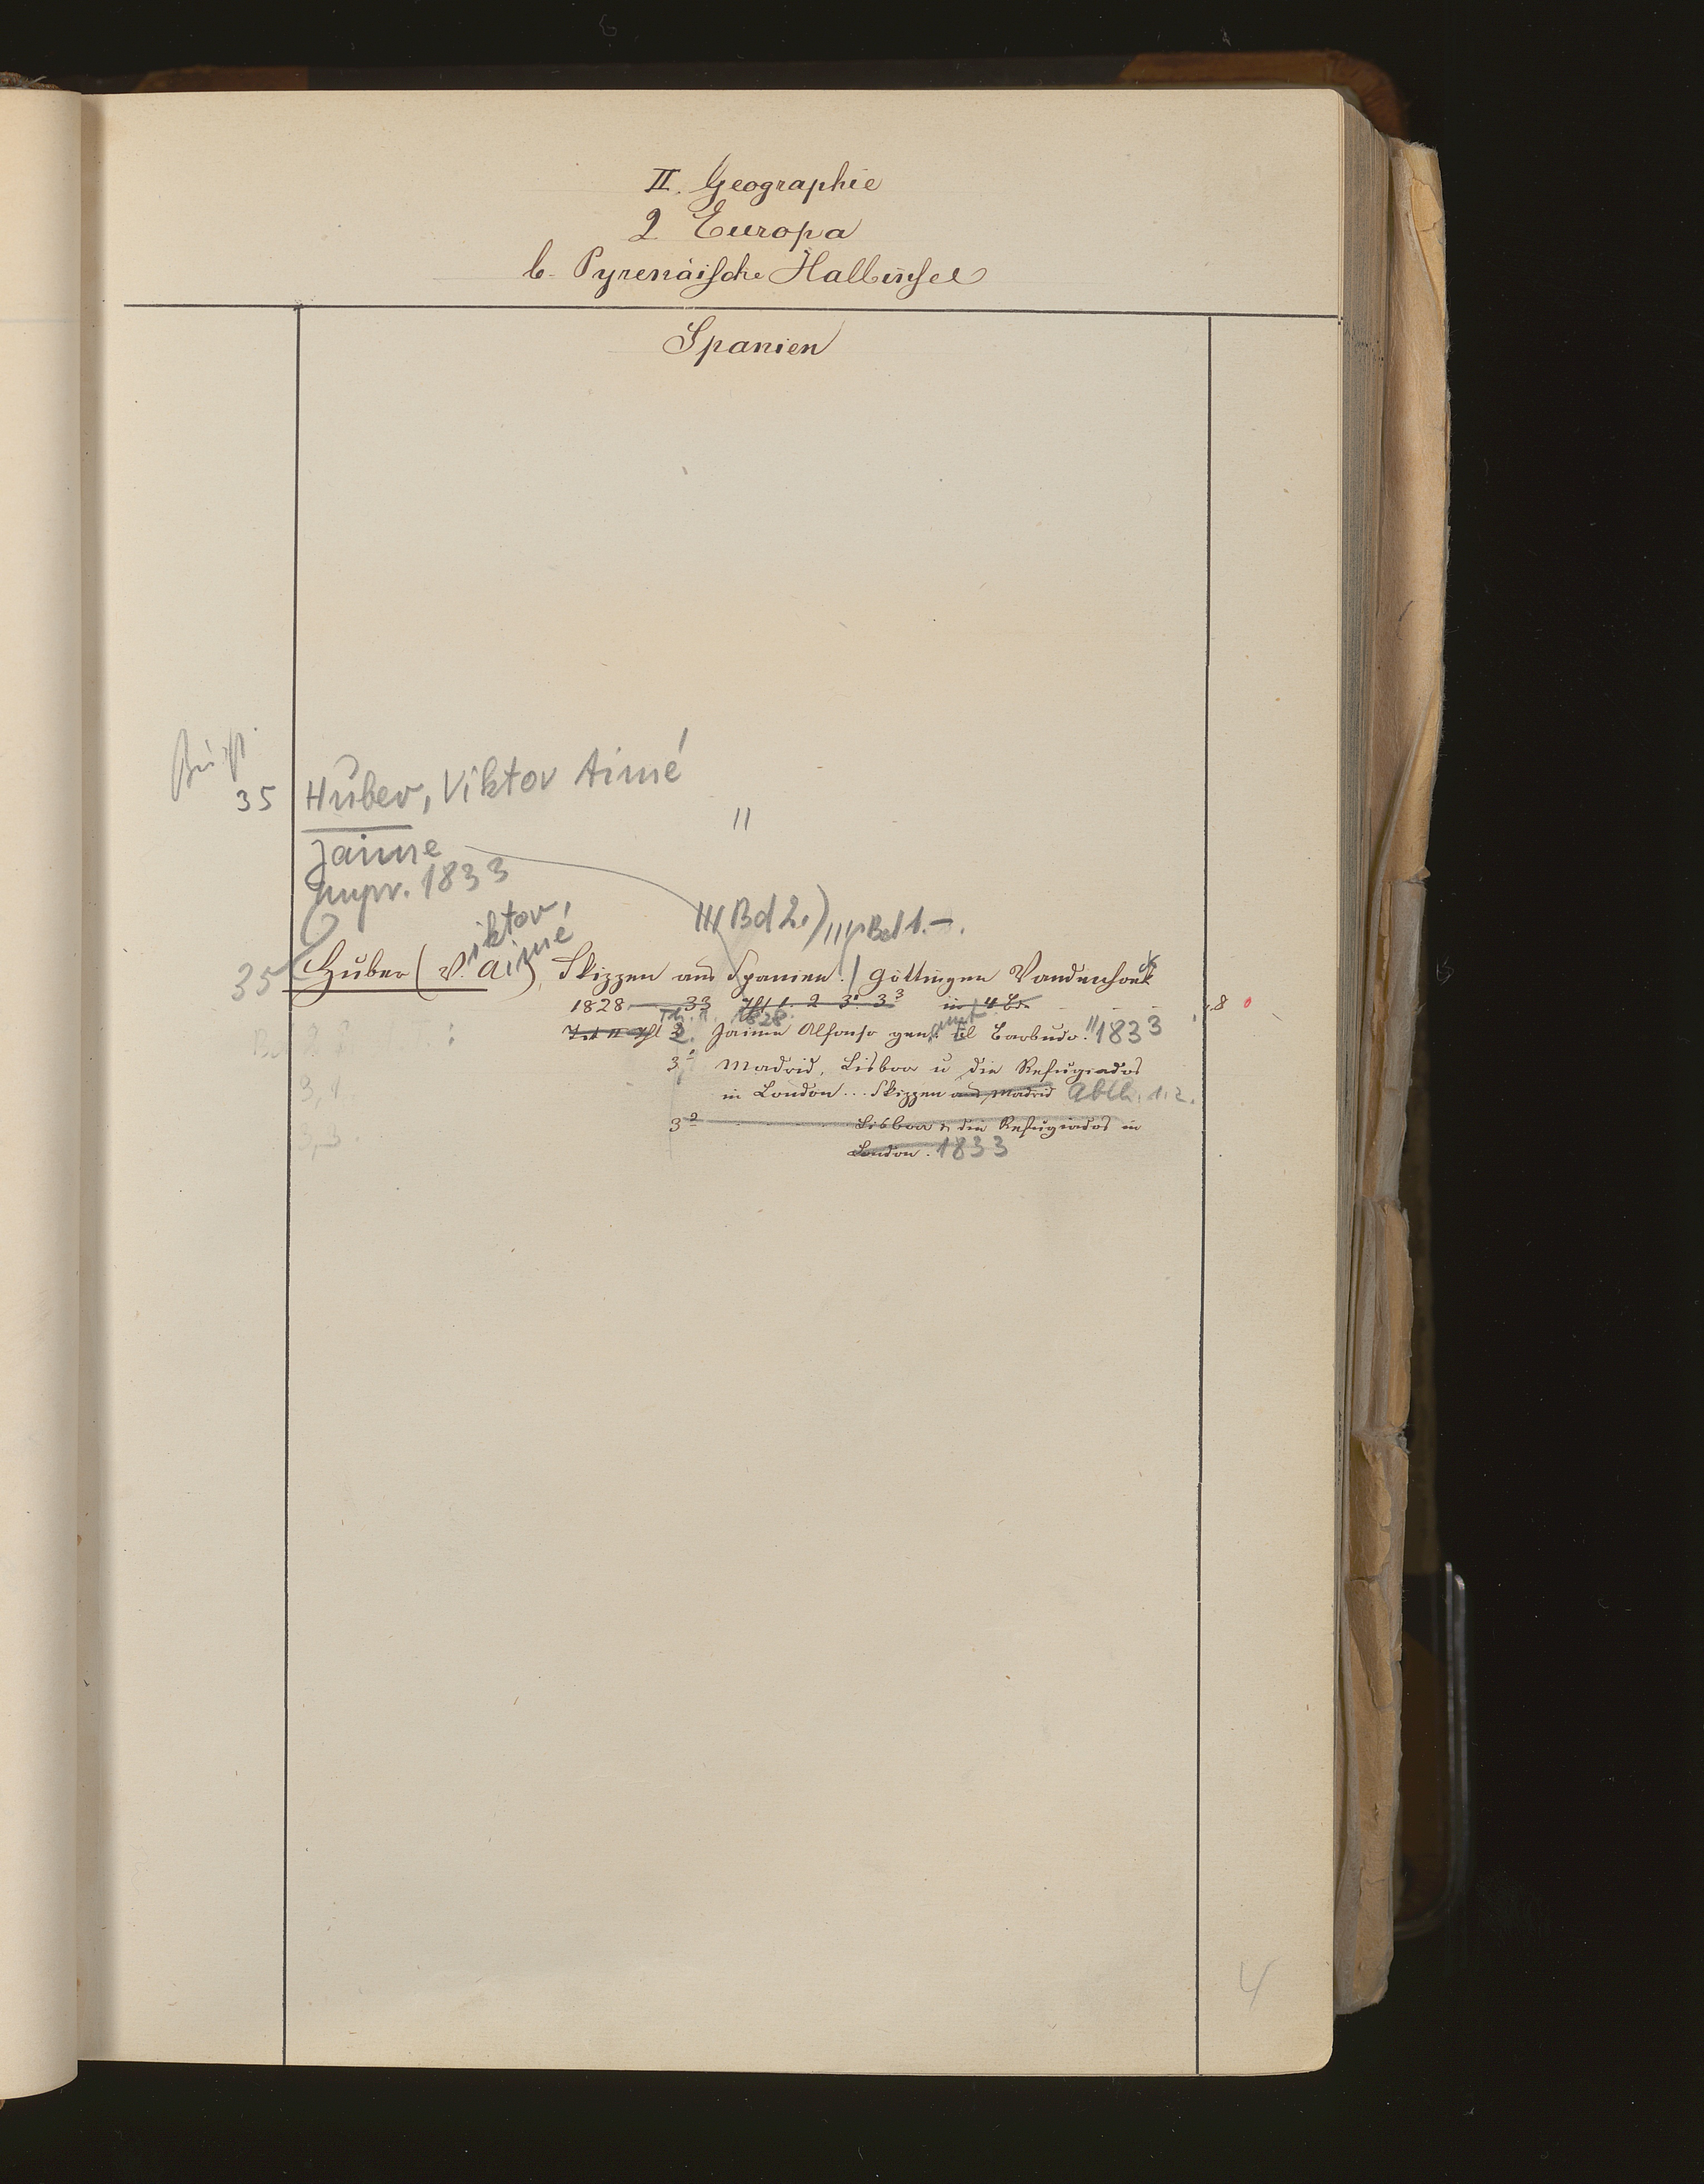 II. Geographie
2 Europa
b. Pyrenäische Halbinsel
Spanien
35 Huber, Viktor Aimé
"
Jaime
1833
III Bd 2.) III Bd 1. –.
iktor,
imé
35 Huber (V. A.), Skizzen aus Spanien. / Göttingen Vandenhoek
1828 – 33 Thl 1. 2 3¹. 3³ in 4 Bdn 8 0
Th. 1828.
Thl 2. Jaime Alfonso genannt el Barbudo. " 1833
3¹ Madrid, Lisboa u die Refugiados
in London... Skizzen aus Madrid Abth. 1. 2.
3² Lisboa u die Refugiados in
London. 1833
3,1.
3,3.
4